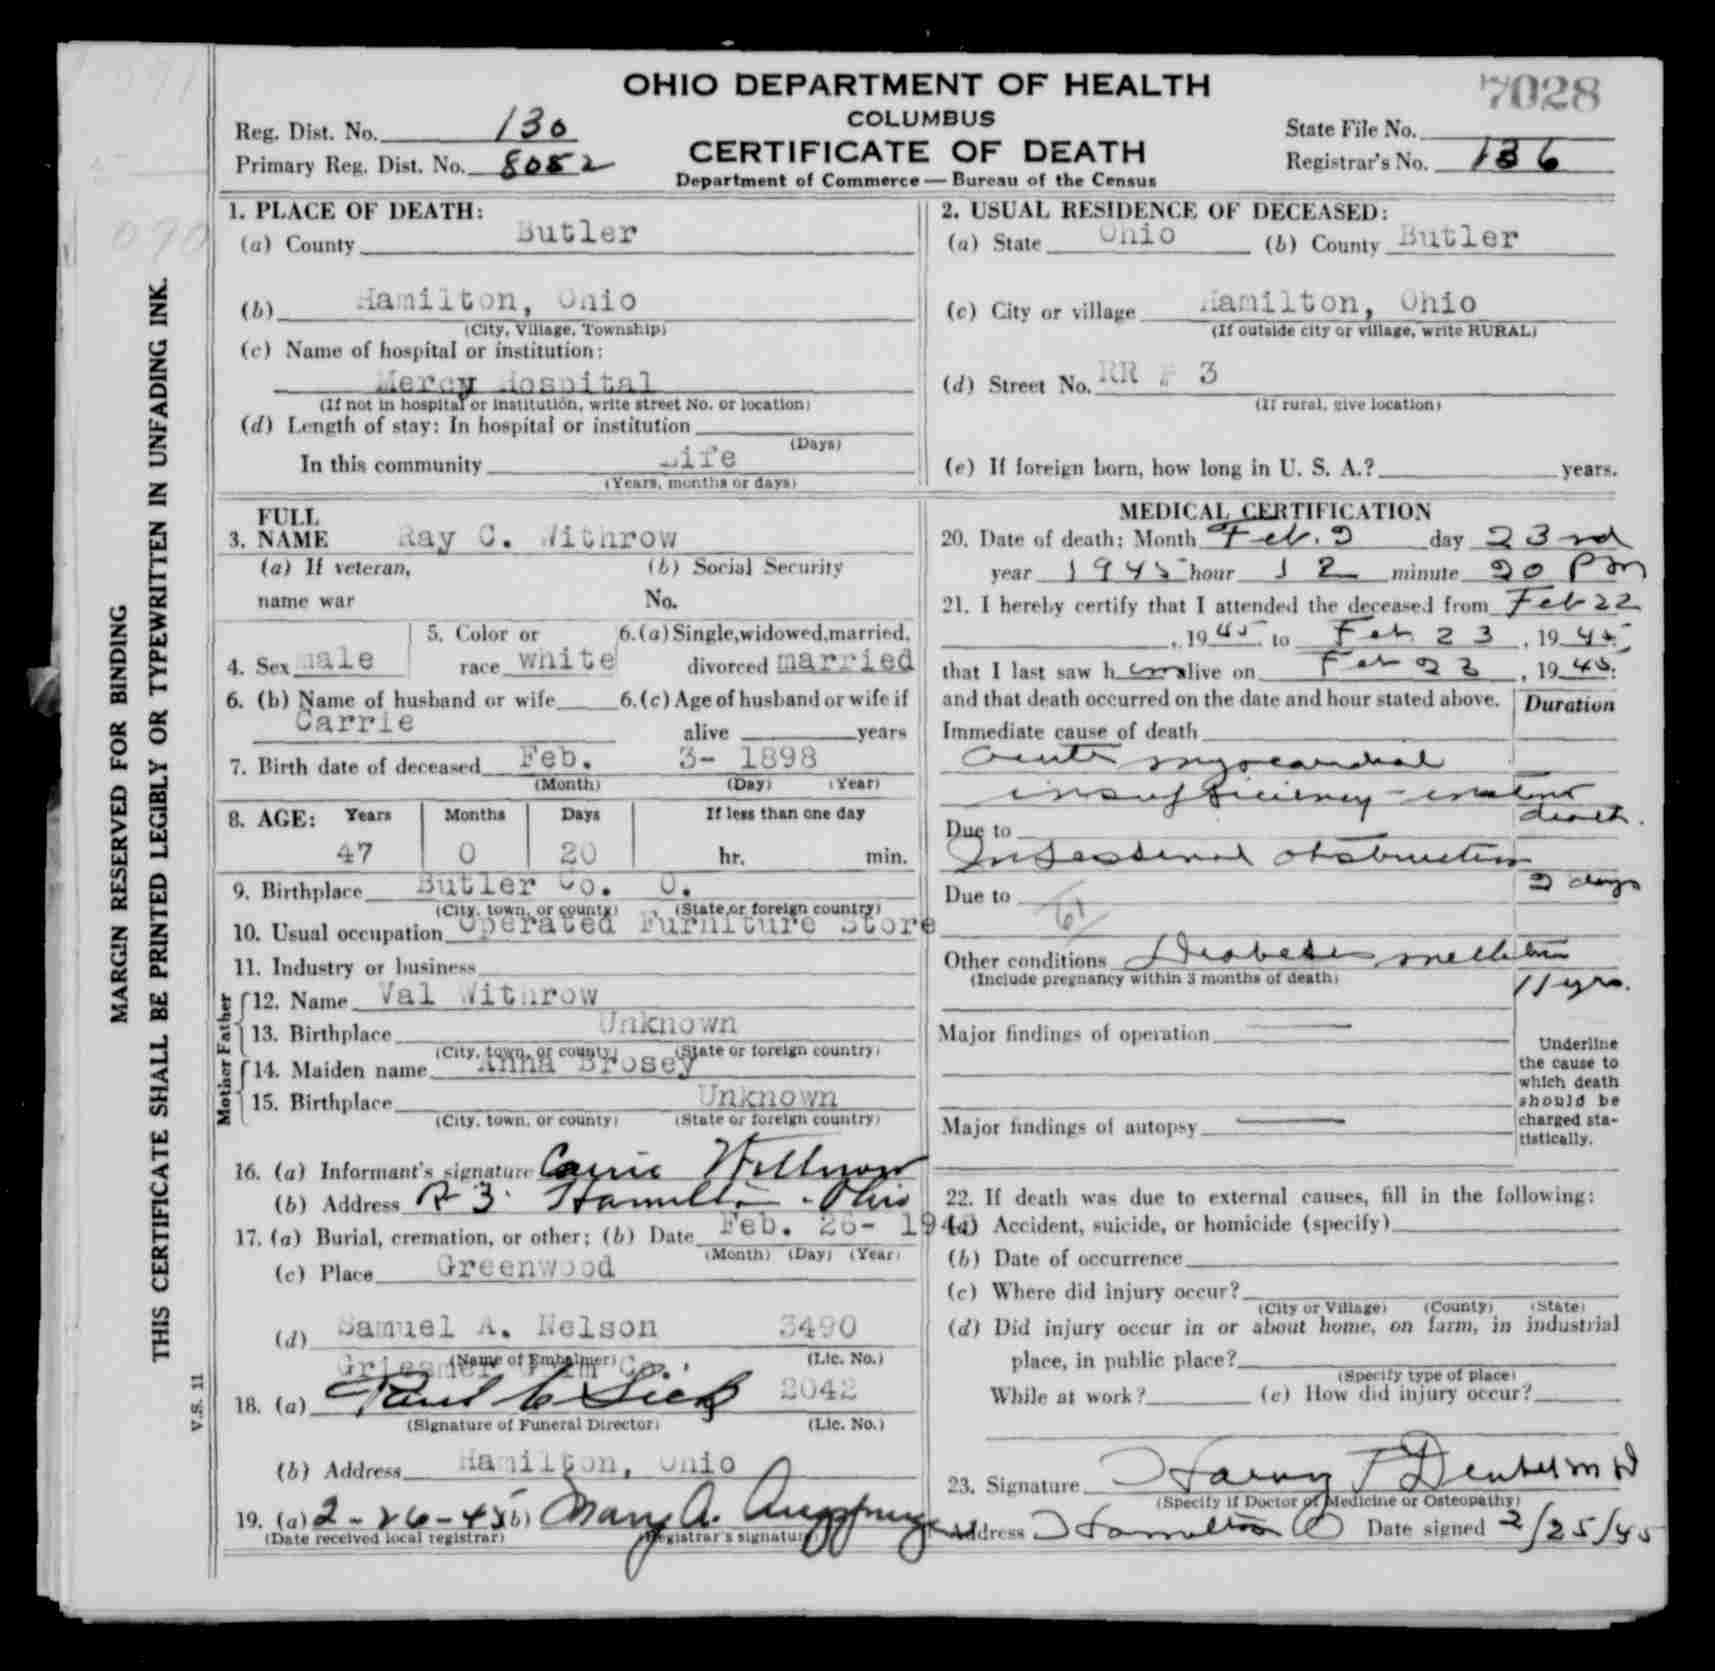 OHIO DEPARTMENT OF HEALTH
7028
COLUMBUS
CERTIFICATE OF DEATH
Department of Commerce — Bureau of the Census
Reg. Dist. No. 130
Primary Reg. Dist. No. 8052
State File No.
Registrar's No. 136
MARGIN RESERVED FOR BINDING
THIS CERTIFICATE SHALL BE PRINTED LEGIBLY OR TYPEWRITTEN IN UNFADING INK.
V.S. 11
1. PLACE OF DEATH:
(a) County Butler
(b) Hamilton, Ohio
(City, Village, Township)
(c) Name of hospital or institution:
Mercy Hospital
(If not in hospital or institution, write street No. or location)
(d) Length of stay: In hospital or institution
(Days)
In this community Life
(Years, months or days)
2. USUAL RESIDENCE OF DECEASED:
(a) State Ohio (b) County Butler
(c) City or village Hamilton, Ohio
(If outside city or village, write RURAL)
(d) Street No. RR # 3
(If rural, give location)
(e) If foreign born, how long in U. S. A.? years.
3. FULL NAME Ray C. Withrow
(a) If veteran, name war
(b) Social Security No.
4. Sex male
5. Color or race white
6. (a) Single, widowed, married, divorced married
6. (b) Name of husband or wife
Carrie
6. (c) Age of husband or wife if alive years
7. Birth date of deceased Feb. 3- 1898
(Month) (Day) (Year)
8. AGE: Years Months Days If less than one day
47 0 20 hr. min.
9. Birthplace Butler Co. O.
(City, town, or county) (State or foreign country)
10. Usual occupation Operated Furniture Store
11. Industry or business
Father
12. Name Val Withrow
13. Birthplace Unknown
(City, town, or county) (State or foreign country)
Mother
14. Maiden name Anna Brosey
15. Birthplace Unknown
(City, town, or county) (State or foreign country)
16. (a) Informant's signature Carrie Withrow
(b) Address R 3. Hamilton - Ohio
17. (a) Burial, cremation, or other; (b) Date Feb. 26- 194
(Month) (Day) (Year)
(c) Place Greenwood
(d) Samuel A. Nelson 3490
(Name of Embalmer) (Lic. No.)
Griesmer Grim Co.
18. (a) Paul C Sick 2042
(Signature of Funeral Director) (Lic. No.)
(b) Address Hamilton, Ohio
19. (a) 2-26-45 (b) Mary A.
(Date received local registrar) (Registrar's signature)
MEDICAL CERTIFICATION
20. Date of death: Month Feb. 2 day 23rd
year 1945 hour 12 minute 20 PM
21. I hereby certify that I attended the deceased from Feb 22
, 1945 to Feb. 23, 1945,
that I last saw him alive on Feb 23, 1945.
and that death occurred on the date and hour stated above.
Duration
Immediate cause of death
acute myocardial
insufficiency - instant
death.
Due to
Intestinal obstruction
2 days
Due to
Other conditions Diabetes mellitus
(Include pregnancy within 3 months of death)
11 yrs.
Major findings of operation
Major findings of autopsy
Underline the cause to which death should be charged statistically.
22. If death was due to external causes, fill in the following:
(a) Accident, suicide, or homicide (specify)
(b) Date of occurrence
(c) Where did injury occur?
(City or Village) (County) (State)
(d) Did injury occur in or about home, on farm, in industrial
place, in public place?
(Specify type of place)
While at work? (e) How did injury occur?
23. Signature Harry T Dentel M D
(Specify if Doctor of Medicine or Osteopathy)
Address Hamilton O Date signed 2/25/45